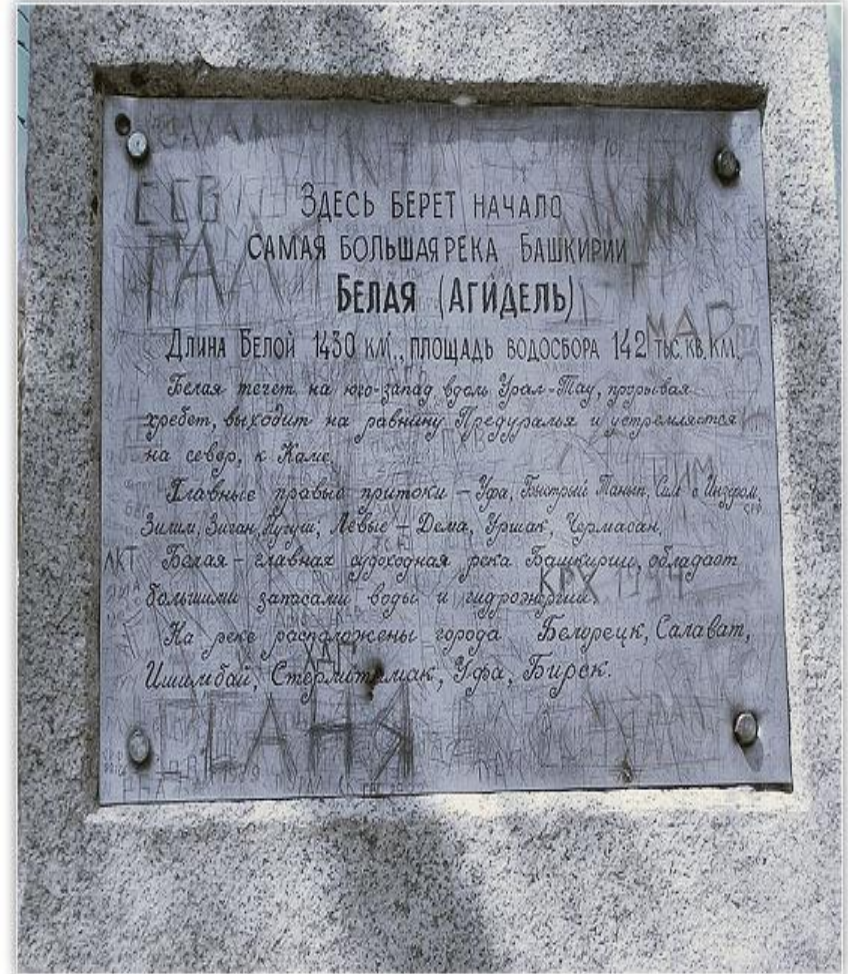 ЗДЕСЬ БЕРЕТ НАЧАЛО
САМАЯ БОЛЬШАЯ РЕКА БАШКИРИИ
БЕЛАЯ (АГИДЕЛЬ)
ДЛИНА БЕЛОЙ 1430 КМ., ПЛОЩАДЬ ВОДОСБОРА 142 ТЫС. КВ. КМ.
Белая течет на юго-запад вдоль Урал-Тау, прорывая
хребет, выходит на равнину Предуралья и устремляется
на север, к Каме.
Главные правые притоки – Уфа, Быстрый Танып, Сим с Инзером,
Зилим, Зиган, Нугуш, Левые – Дема, Уршак, Чермасан.
Белая – главная судоходная река Башкирии, обладает
большими запасами воды и гидроэнергии.
На реке расположены города Белорецк, Салават,
Ишимбай, Стерлитамак, Уфа, Бирск.
ССВ
ГАЛ
МАР
РИМ
ЛКТ
КРХ 1994
САНЯ